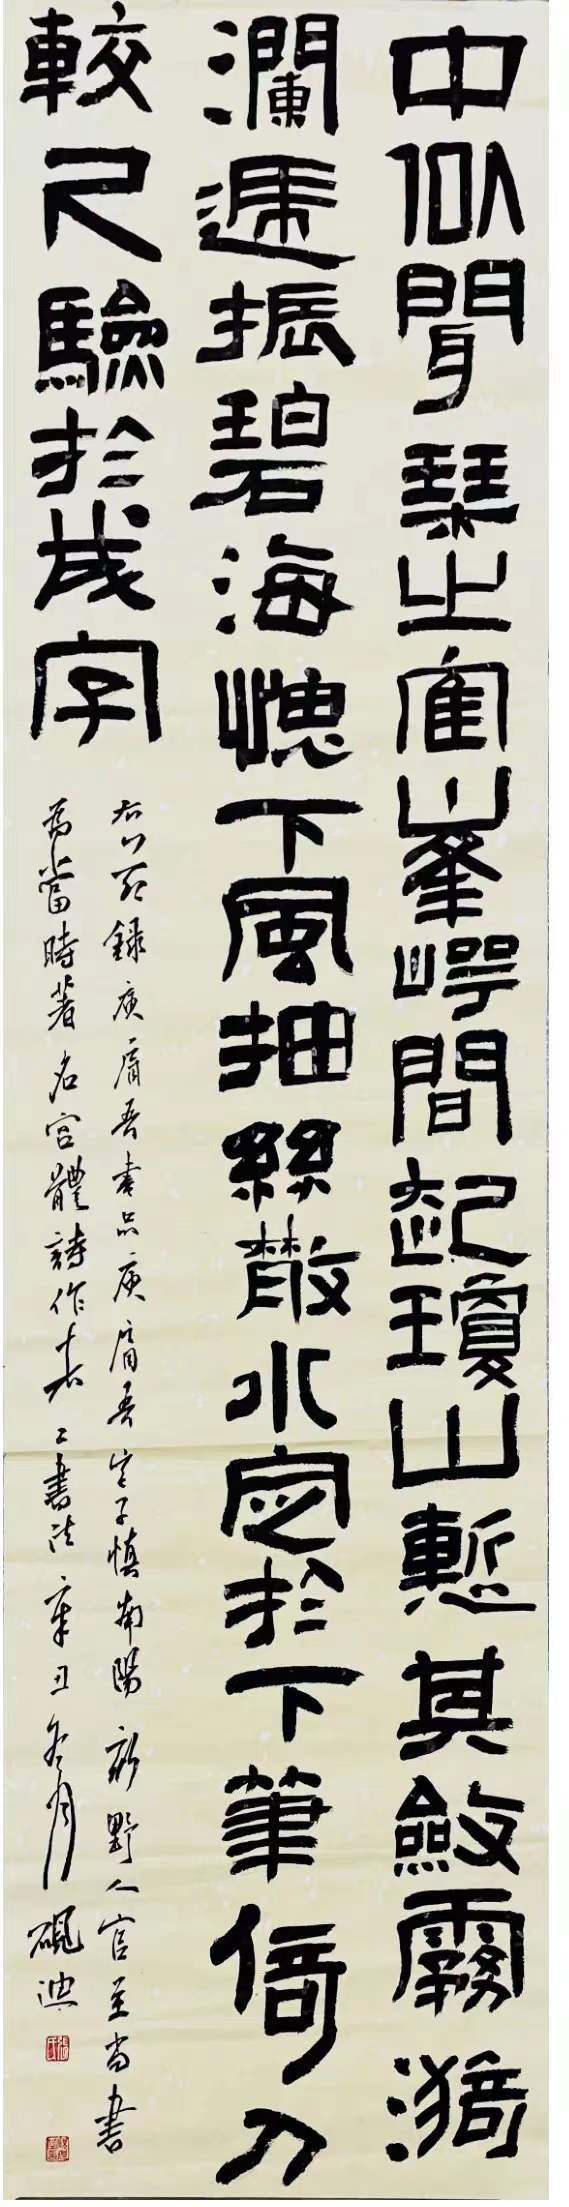 中似聞琴之隺峯崿間起瓊山慙其斂霧漪
瀾遞振碧海愧下風抽絲散水定於下筆倚刀
較尺驗於成字
右節錄庾肩吾書品庾肩吾字子慎南陽新野人官至尚書
為當時著名宮體詩作者工書法辛丑冬月硯迪